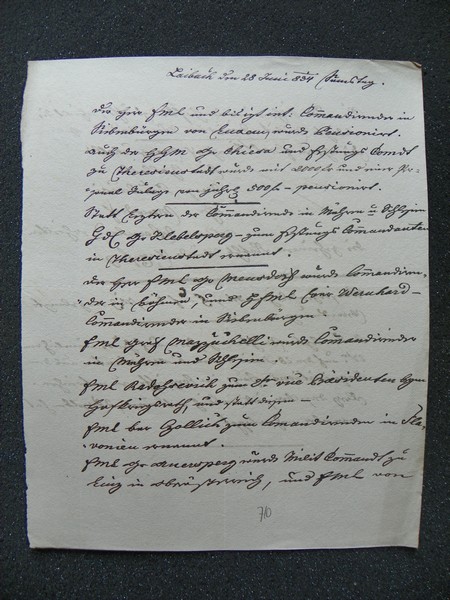 Laibach den 28 Juni 834 Samstag.
Der Herr FML und bis izt int. Commandirender in
Siebenbürgen von wurde Pensionirt.
Auch der Gr und Festungs Comdt
zu Theresienstadt wurde mit 4000 f und einer Per-
sonal Zulage von jährl 500 f – pensionirt.
Statt leztern der Commandirende in Mähren u Schlesien
GdC Gr. Klebelsperg – zum Festungs Commandanten
in Theresienstadt ernannt.
Der Herr FML Gr Mensdorf wurde Commandiren-
der in Böhmen, und FML –
Commandirender in Siebenbürgen
FML Graf Mazzuchelli wurde Commandirender
in Mähren und Schlesien.
FML Radossevich zum vice Präsidenten beym
Hofkriegsrath, und statt diesen –
FML bar zum Comandirenden in Sla-
vonien ernannt.
FML Gr Auersperg wurde Milit Commandt zu
Linz in Oberösterreich, und FML von
710